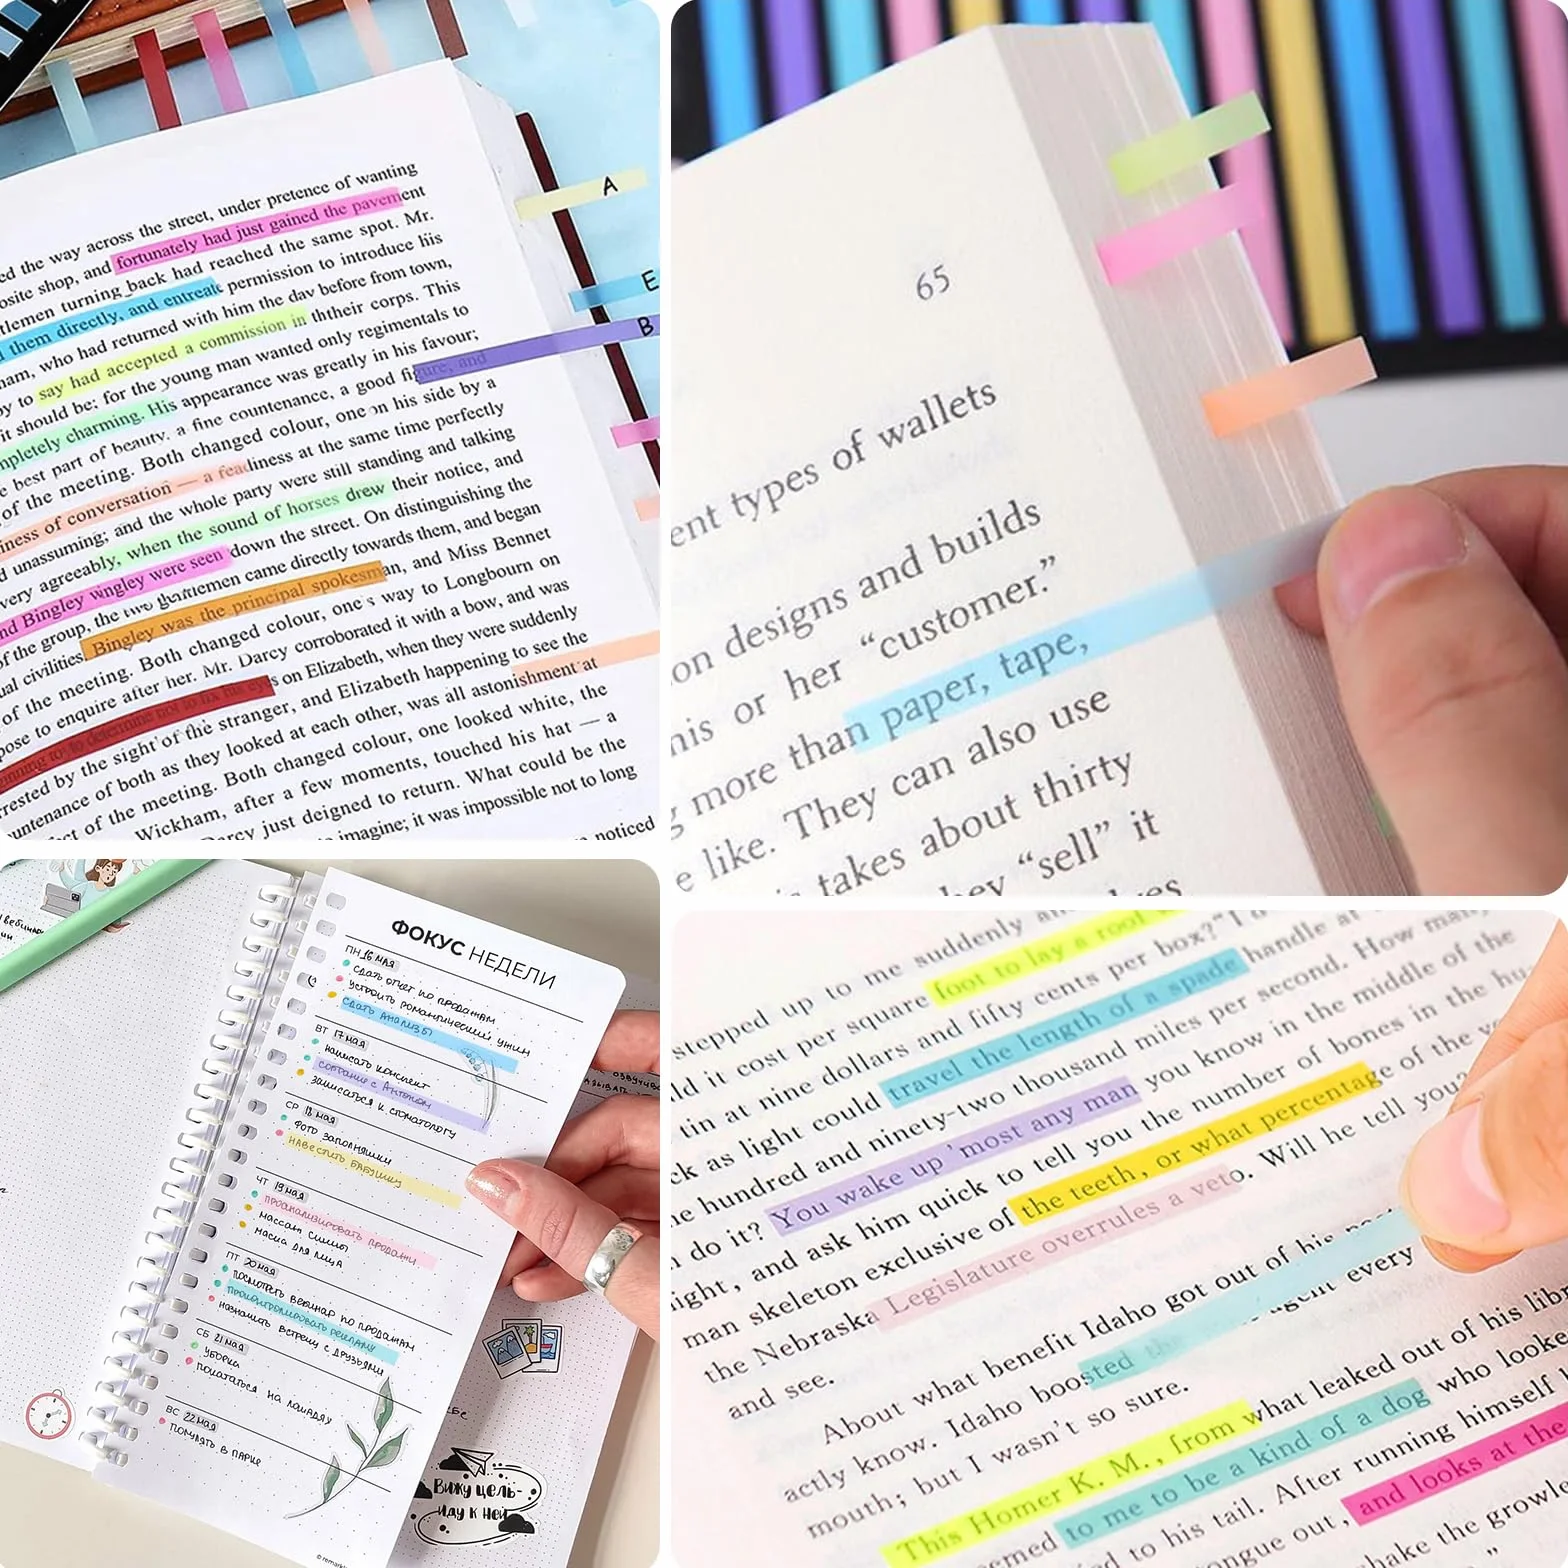 ed the way across the street, under pretence of wanting
osite shop, and fortunately had just gained the pavement
tlemen turning back had reached the same spot. Mr.
them directly, and entreate permission to introduce his
ham, who had returned with him the day before from town,
say had accepted a commission in ththeir corps. This
it should be; for the young man wanted only regimentals to
mpletely charming. His appearance was greatly in his favour;
best part of beauty. a fine countenance, a good figure, and
of the meeting. Both changed colour, one on his side by a
iness of conversation — a readiness at the same time perfectly
unassuming; and the whole party were still standing and talking
very agreeably, when the sound of horses drew their notice, and
nd Bingley wngley were seen down the street. On distinguishing the
of the group, the two gentlemen came directly towards them, and began
ual civilities. Bingley was the principal spokesman, and Miss Bennet
of the meeting. Both changed colour, one's way to Longbourn on
pose to enquire after her. Mr. Darcy corroborated it with a bow, and was
to determine not to fix his eyes on Elizabeth, when they were suddenly
rrested by the sight of the stranger, and Elizabeth happening to see the
untenance of both as they looked at each other, was all astonishment at
ct of the meeting. Both changed colour, one looked white, the
Wickham, after a few moments, touched his hat — a
Darcy just deigned to return. What could be the
imagine; it was impossible not to long
noticed
A
E
B
65
ent types of wallets
on designs and builds
his or her “customer.”
g more than paper, tape,
e like. They can also use
takes about thirty
hey “sell” it
ФОКУС НЕДЕЛИ
ПН 16 МАЯ
сдать отчет по продажам
устроить романтический ужин
сдать анализы
ВТ 17 мая
написать конспект
собрание с Антоном
записаться к стоматологу
СР 18 мая
фото заполняшки
навестить бабушку
ЧТ 19 мая
проанализировать продажи
массаж спины
маска для лица
ПТ 20 мая
посмотреть вебинар по продажам
проконтролировать рекламу
назначить встречу с друзьями
СБ 21 мая
уборка
покататься на лошадях
ВС 22 мая
погулять в парке
Вижу цель-
иду к ней
stepped up to me suddenly an
ld it cost per square foot to lay a roof
tin at nine dollars and fifty cents per box?” I
ck as light could travel the length of a spade handle at
ne hundred and ninety-two thousand miles per second. How many
do it? You wake up 'most any man you know in the middle of the
ight, and ask him quick to tell you the number of bones in the hu
man skeleton exclusive of the teeth, or what percentage of the vo
the Nebraska Legislature overrules a veto. Will he tell you?
and see.
About what benefit Idaho got out of his
actly know. Idaho boosted the agent every
mouth; but I wasn't so sure.
This Homer K. M., from what leaked out of his libr
eemed to me to be a kind of a dog who looke
ed to his tail. After running himself
ongue out, and looks at the
hake the growle